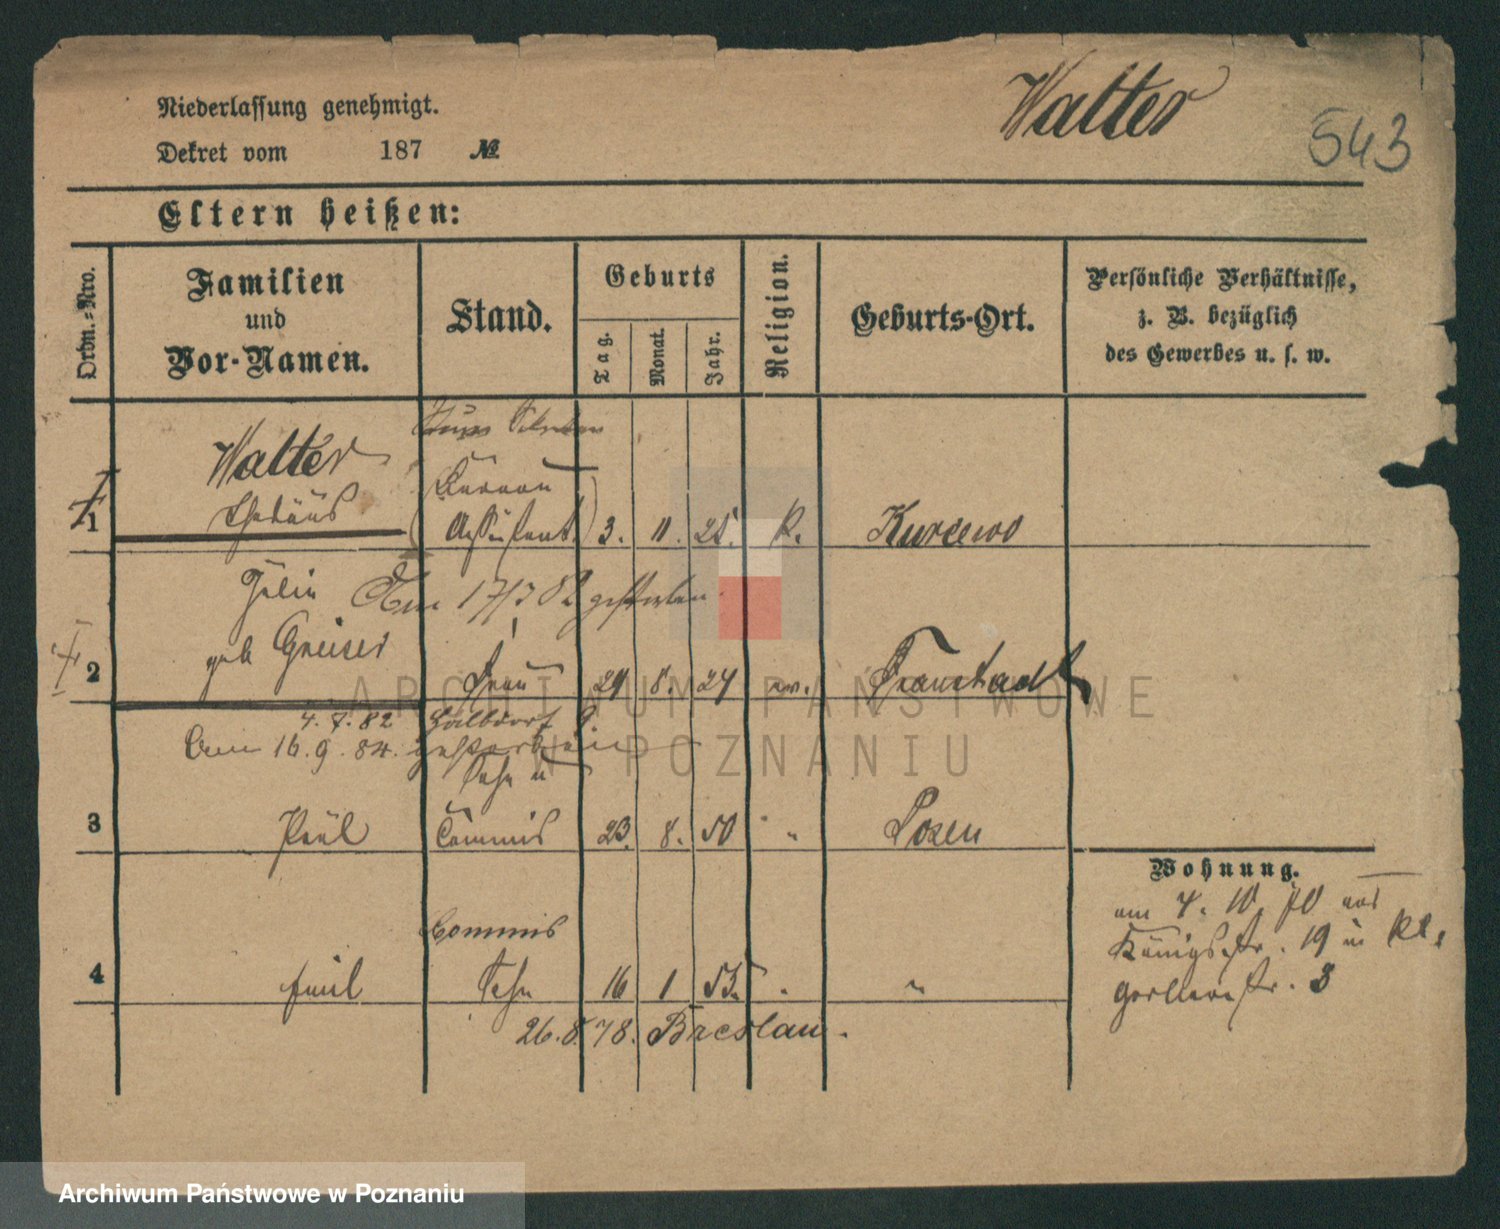 Niederlassung genehmigt.
Walter
543
Dekret vom 187 №
Eltern heißen:
Ordn.-Nro.
Familien
und
Vor-Namen.
Stand.
Geburts
Tag.
Monat.
Jahr.
Religion.
Geburts-Ort.
Persönliche Verhältnisse,
z. B. bezüglich
des Gewerbes u. s. w.
Walter
1
Assistent 3. 11. 25. k. Kurcewo
Am 17/3 82 gestorben
geb Greiser
2 Frau 24 8. 24 ev. Fraustadt
4. 7. 82
Am 16. 9. 84. gestorben
Sohn u
3 Paul Commis 23. 8. 50 " Posen
Wohnung.
am 4. 10. 70 aus
Commis
Königsstr. 19 in Kl.
4 Emil Sohn 16 1 53. " "
Gerberstr. 8
26. 8. 78. Breslau.
ARCHIWUM PAŃSTWOWE
W POZNANIU
Archiwum Państwowe w Poznaniu